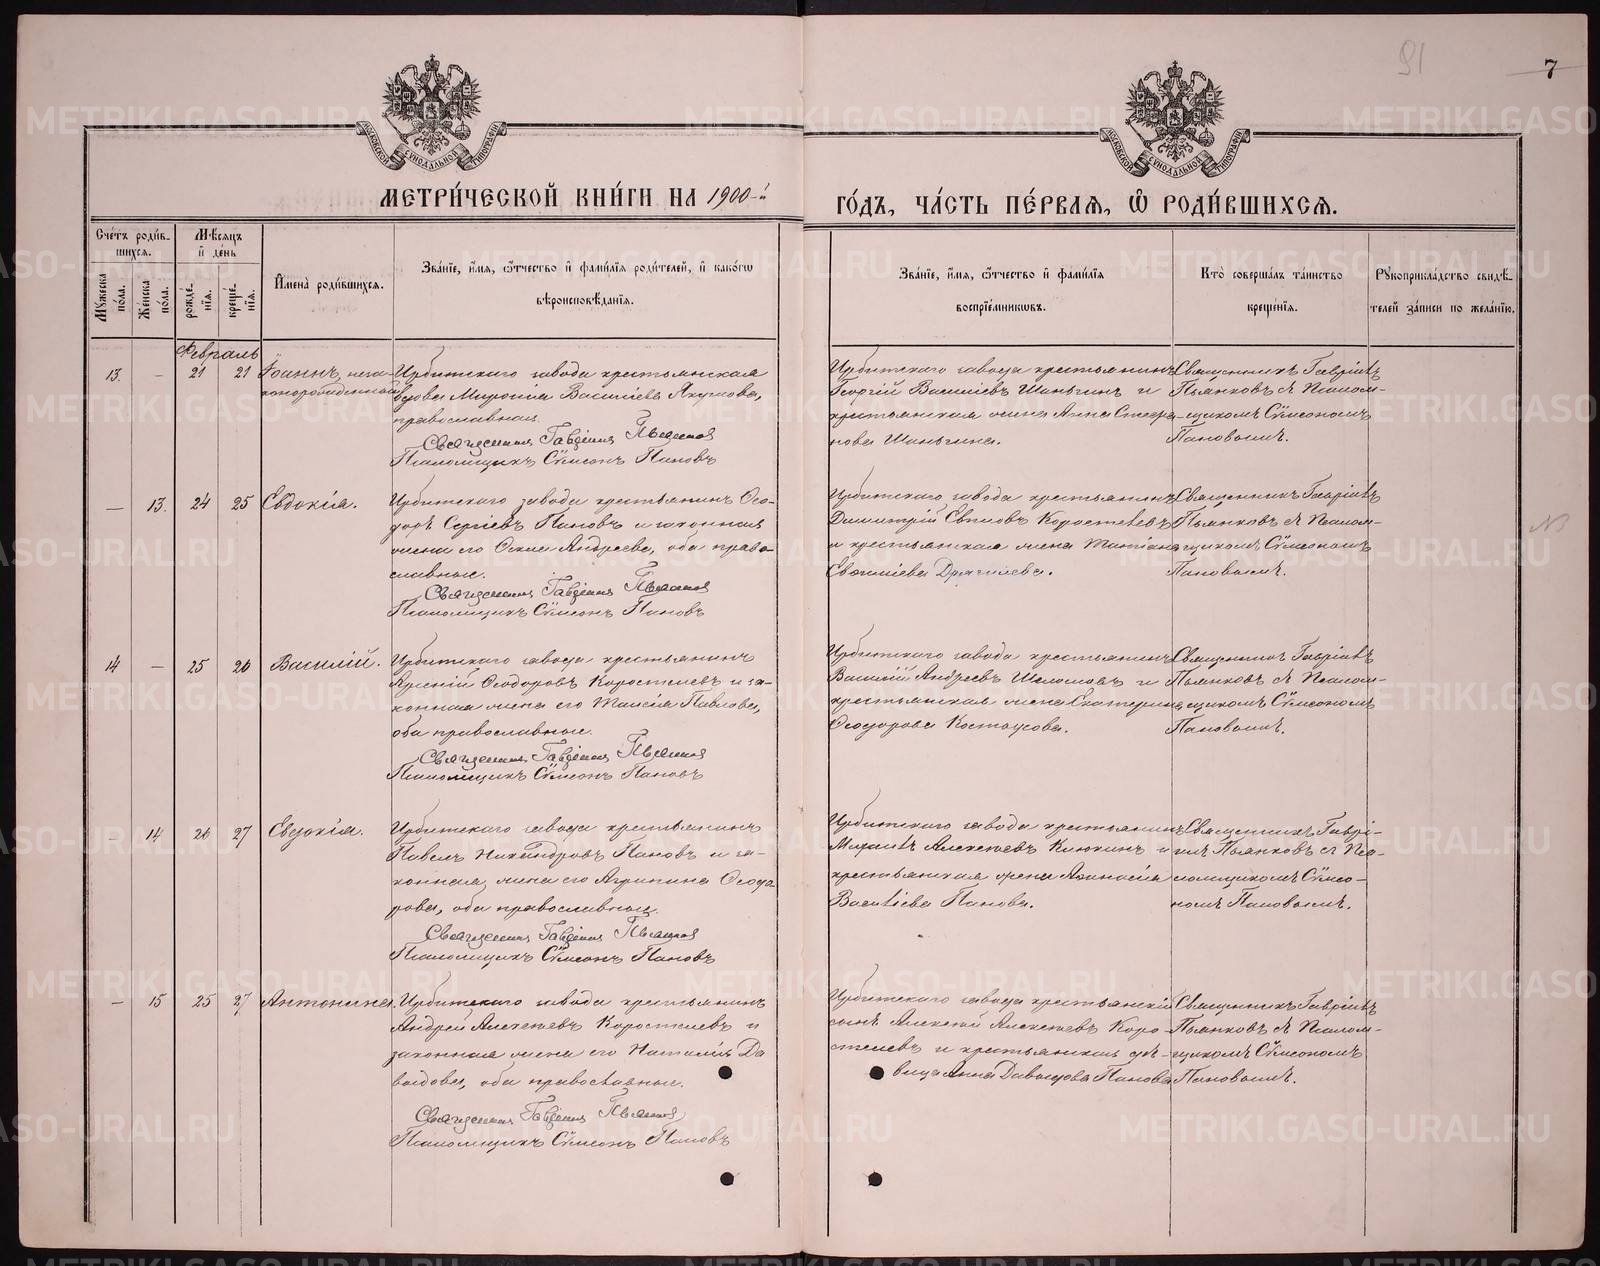 91
7
МОСКОВСКОЙ СУНОДАЛЬНОЙ ТИПОГРАФІИ
МОСКОВСКОЙ СУНОДАЛЬНОЙ ТИПОГРАФІИ
МЕТРИ́ЧЕСКОЙ КНИ́ГИ НА 1900-й
ГО́ДЪ, ЧА́СТЬ ПЕ́РВАѦ, Ѽ РОДИ́ВШИХСѦ.
Сче́тъ роди́в-
шихсѧ.
Мѣ́сѧцъ
и҆ де́нь
Мꙋ́жеска по́ла.
Же́нска по́ла.
рожде́-
нїѧ.
креще́-
нїѧ.
И҆мена̀ роди́вшихсѧ.
Зва́нїе, и҆́мѧ, ѻ҆́тчество и҆ фами́лїѧ роди́телей, и҆ како́гѡ
вѣроисповѣ́данїѧ.
Зва́нїе, и҆́мѧ, ѻ҆́тчество и҆ фами́лїѧ
воспрїе́мникѡвъ.
Кто̀ соверша́лъ та́инство
креще́нїѧ.
Рꙋкоприкла́дство свидѣ́-
телей за́писи по жела́нїю.
Февраль
13. — 21 21 Іоаннъ, неза-
коннорожденный
Ирбитскаго завода крестьянская
вдова Миронія Василіева Якушова,
православная.
Священникъ Гавріилъ Пьянковъ
Псаломщикъ Сѷмеонъ Пановъ
Ирбитскаго завода крестьянинъ
Георгій Василіевъ Шаньгинъ и
крестьянская жена Анна Стефа-
нова Шаньгина.
Священникъ Гавріилъ
Пьянковъ съ Псалом-
щикомъ Сѷмеономъ
Пановымъ.
— 13. 24 25 Евдокія.
Ирбитскаго завода крестьянинъ Ѳео-
доръ Сергіевъ Пановъ и законная
жена его Андреева, оба право-
славные.
Священникъ Гавріилъ Пьянковъ
Псаломщикъ Сѷмеонъ Пановъ
Ирбитскаго завода крестьянинъ
Димитрій Коростелевъ
и крестьянская жена Татіана
Драчилева.
Священникъ Гавріилъ
Пьянковъ съ Псалом-
щикомъ Сѷмеономъ
Пановымъ.
14 — 25 26 Василій.
Ирбитскаго завода крестьянинъ
Арсеній Ѳеодоровъ Коростелевъ и за-
конная жена его Таисія Павлова,
оба православные.
Священникъ Гавріилъ Пьянковъ
Псаломщикъ Сѷмеонъ Пановъ
Ирбитскаго завода крестьянинъ
Василій Андреевъ Шеломовъ и
крестьянская жена Екатерина
Ѳеодорова Костоусова.
Священникъ Гавріилъ
Пьянковъ съ Псалом-
щикомъ Сѷмеономъ
Пановымъ.
— 14 26 27 Евдокія.
Ирбитскаго завода крестьянинъ
Павелъ Никандровъ Пановъ и за-
конная жена его Агрипина Ѳеодо-
рова, оба православные.
Священникъ Гавріилъ Пьянковъ
Псаломщикъ Сѷмеонъ Пановъ
Ирбитскаго завода крестьянинъ
Михаилъ Алексеевъ Клюкинъ и
крестьянская жена Аѳанасія
Василіева Панова.
Священникъ Гаврі-
илъ Пьянковъ съ Пса-
ломщикомъ Сѷмео-
номъ Пановымъ.
— 15 25 27 Антонина.
Ирбитскаго завода крестьянинъ
Андрей Алексеевъ Коростелевъ и
законная жена его Наталія Да-
выдова, оба православные.
Священникъ Гавріилъ Пьянковъ
Псаломщикъ Сѷмеонъ Пановъ
Ирбитскаго завода крестьянскій
сынъ Алексей Алексеевъ Коро-
стелевъ и крестьянская дѣ-
вица Анна Давыдова Панова.
Священникъ Гавріилъ
Пьянковъ съ Псалом-
щикомъ Сѷмеономъ
Пановымъ.
METRIKI.GASO-URAL.RU